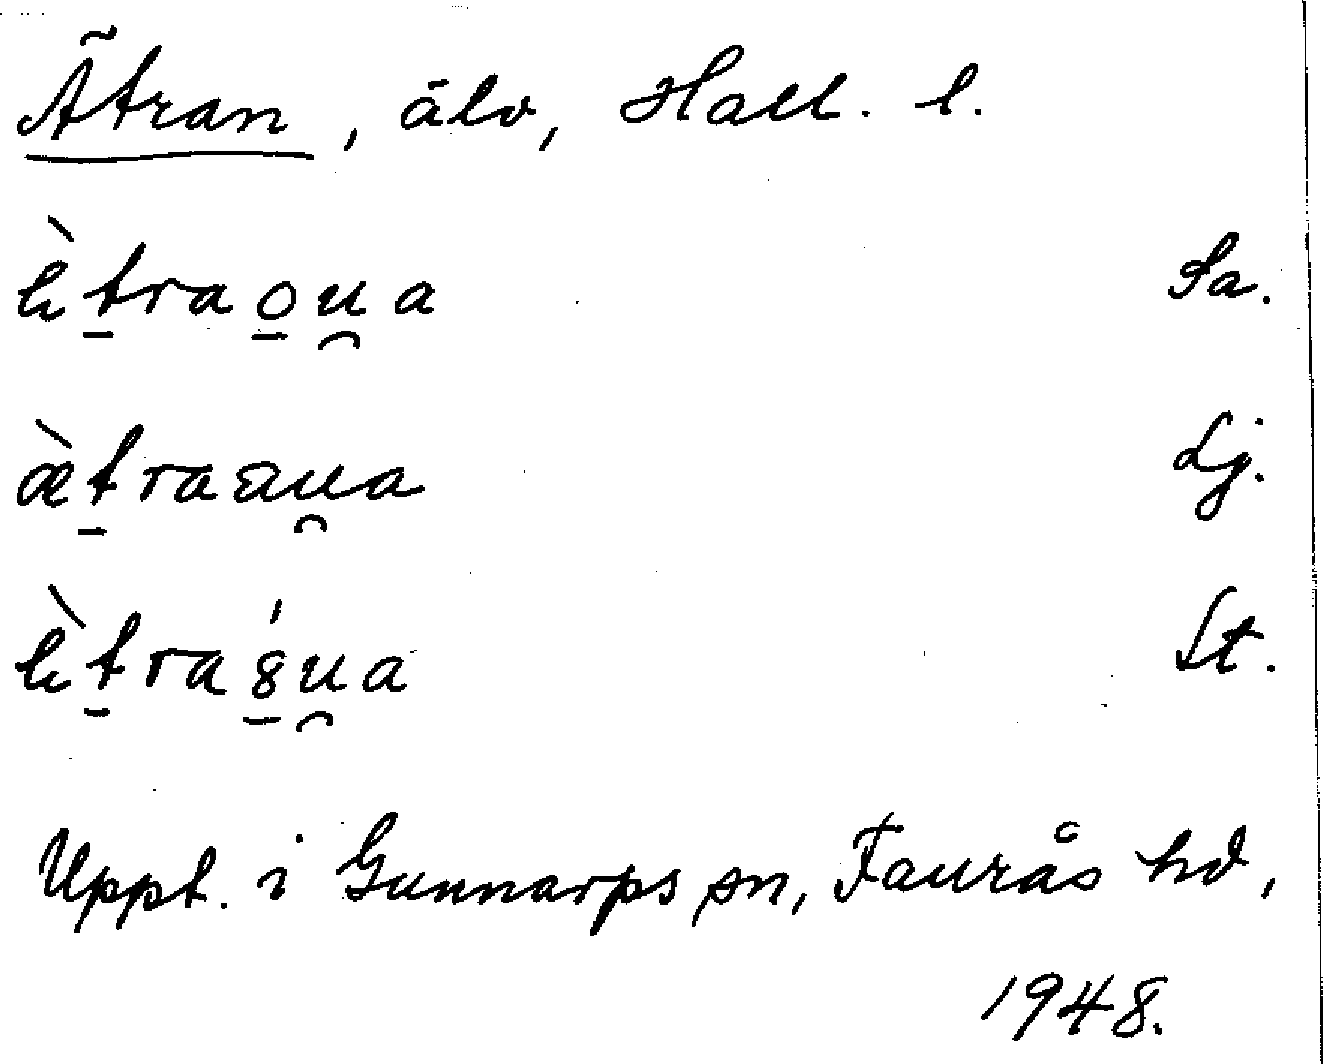 Ätran, älv, Hall. l.
ètraou̯a Sa.
æ̀traau̯a Lj.
ètra8́u̯a St.
Uppt. i Gunnarps sn, Faurås hd,
1948.